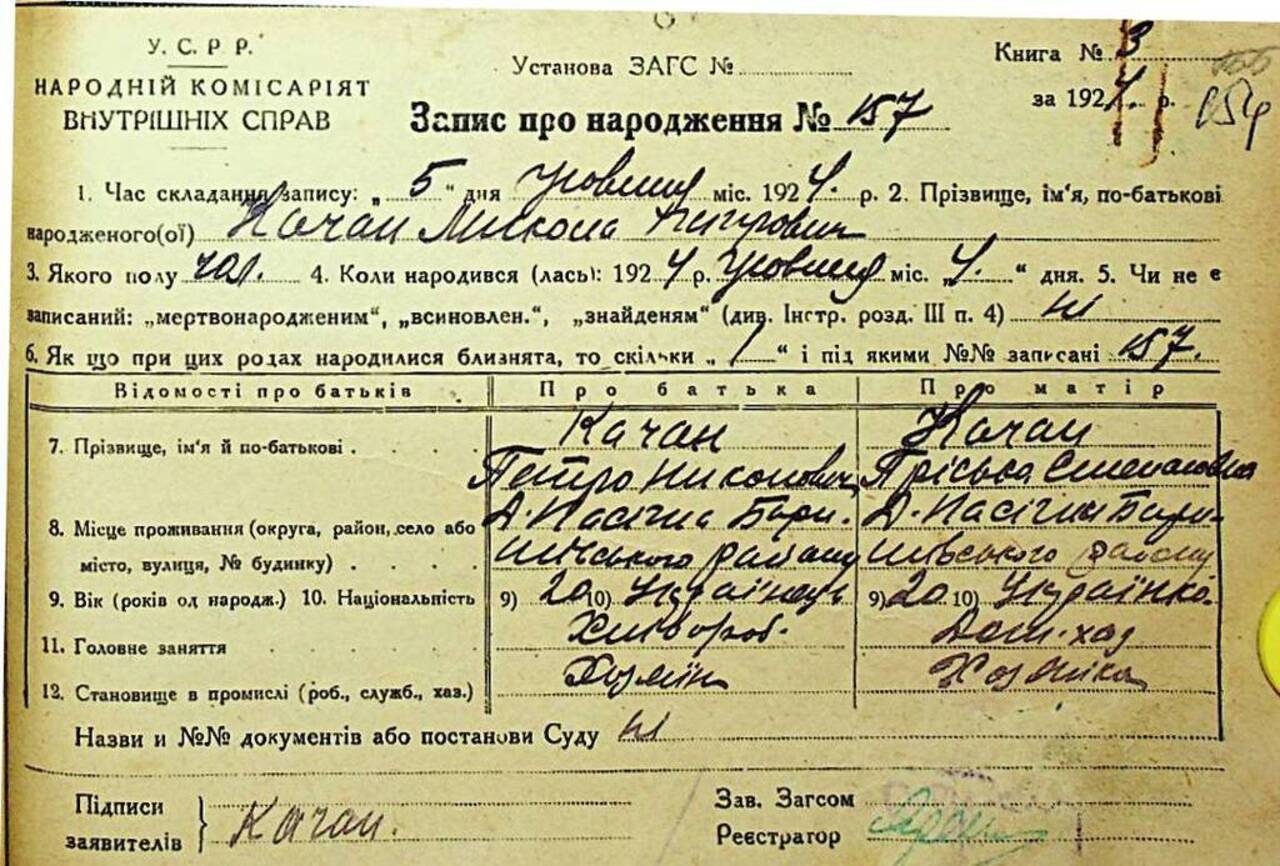 У. С. Р Р.
НАРОДНІЙ КОМІСАРІЯТ
ВНУТРІШНІХ СПРАВ
Установа ЗАГС №
Книга № 3
за 1924. р.
Запис про народження № 157
1. Час складання запису: „ 5 “ дня міс. 1924. р. 2. Прізвище, ім'я, по-батькові
народженого(ої) Качан Микола Петрович
3. Якого полу чол. 4. Коли народився (лась): 1924 р. міс. „4.“ дня. 5. Чи не є
записаний: „мертвонародженим“, „всиновлен.“, „знайденям“ (див. Інстр. розд. III п. 4) ні
6. Як що при цих родах народилися близнята, то скільки „ 1 “ і під якими №№ записані 157.
Відомості про батьків Про батька Про матір
7. Прізвище, ім'я й по-батькові Качан Качан
Петро Никонович Пріська Степановна
8. Місце проживання (округа, район, село або Д. Пасічна Бари- Д. Пасічна Бари-
місто, вулиця, № будинку) шівського району шівського району
9. Вік (років од народж.) 10. Національність 9) 20 10) Українець 9) 20 10) Українка.
11. Головне заняття Хлібороб. Дом-хаз
12. Становище в промислі (роб., служб., хаз.) Хозяїн Хозяйка
Назви и №№ документів або постанови Суду ні
Підписи
заявителів } Качан.
Зав. Загсом
Реєстратор